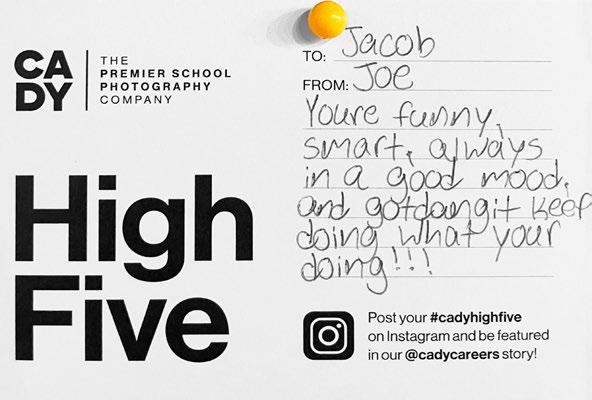 CA
DY
THE
PREMIER SCHOOL
PHOTOGRAPHY
COMPANY
High
Five
TO: Jacob
FROM: Joe
Youre funny,
smart, always
in a good mood,
and gotdangit keep
doing what your
doing!!!
Post your #cadyhighfive
on Instagram and be featured
in our @cadycareers story!